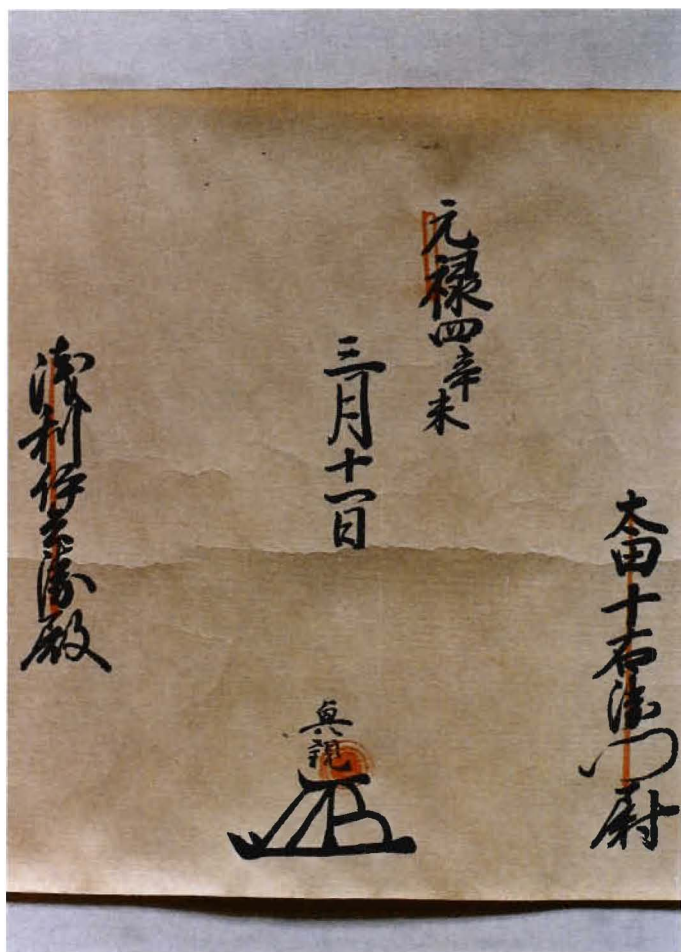 太田十右衛門尉
元禄四辛未
三月十一日
真親
浅利伊兵衛殿